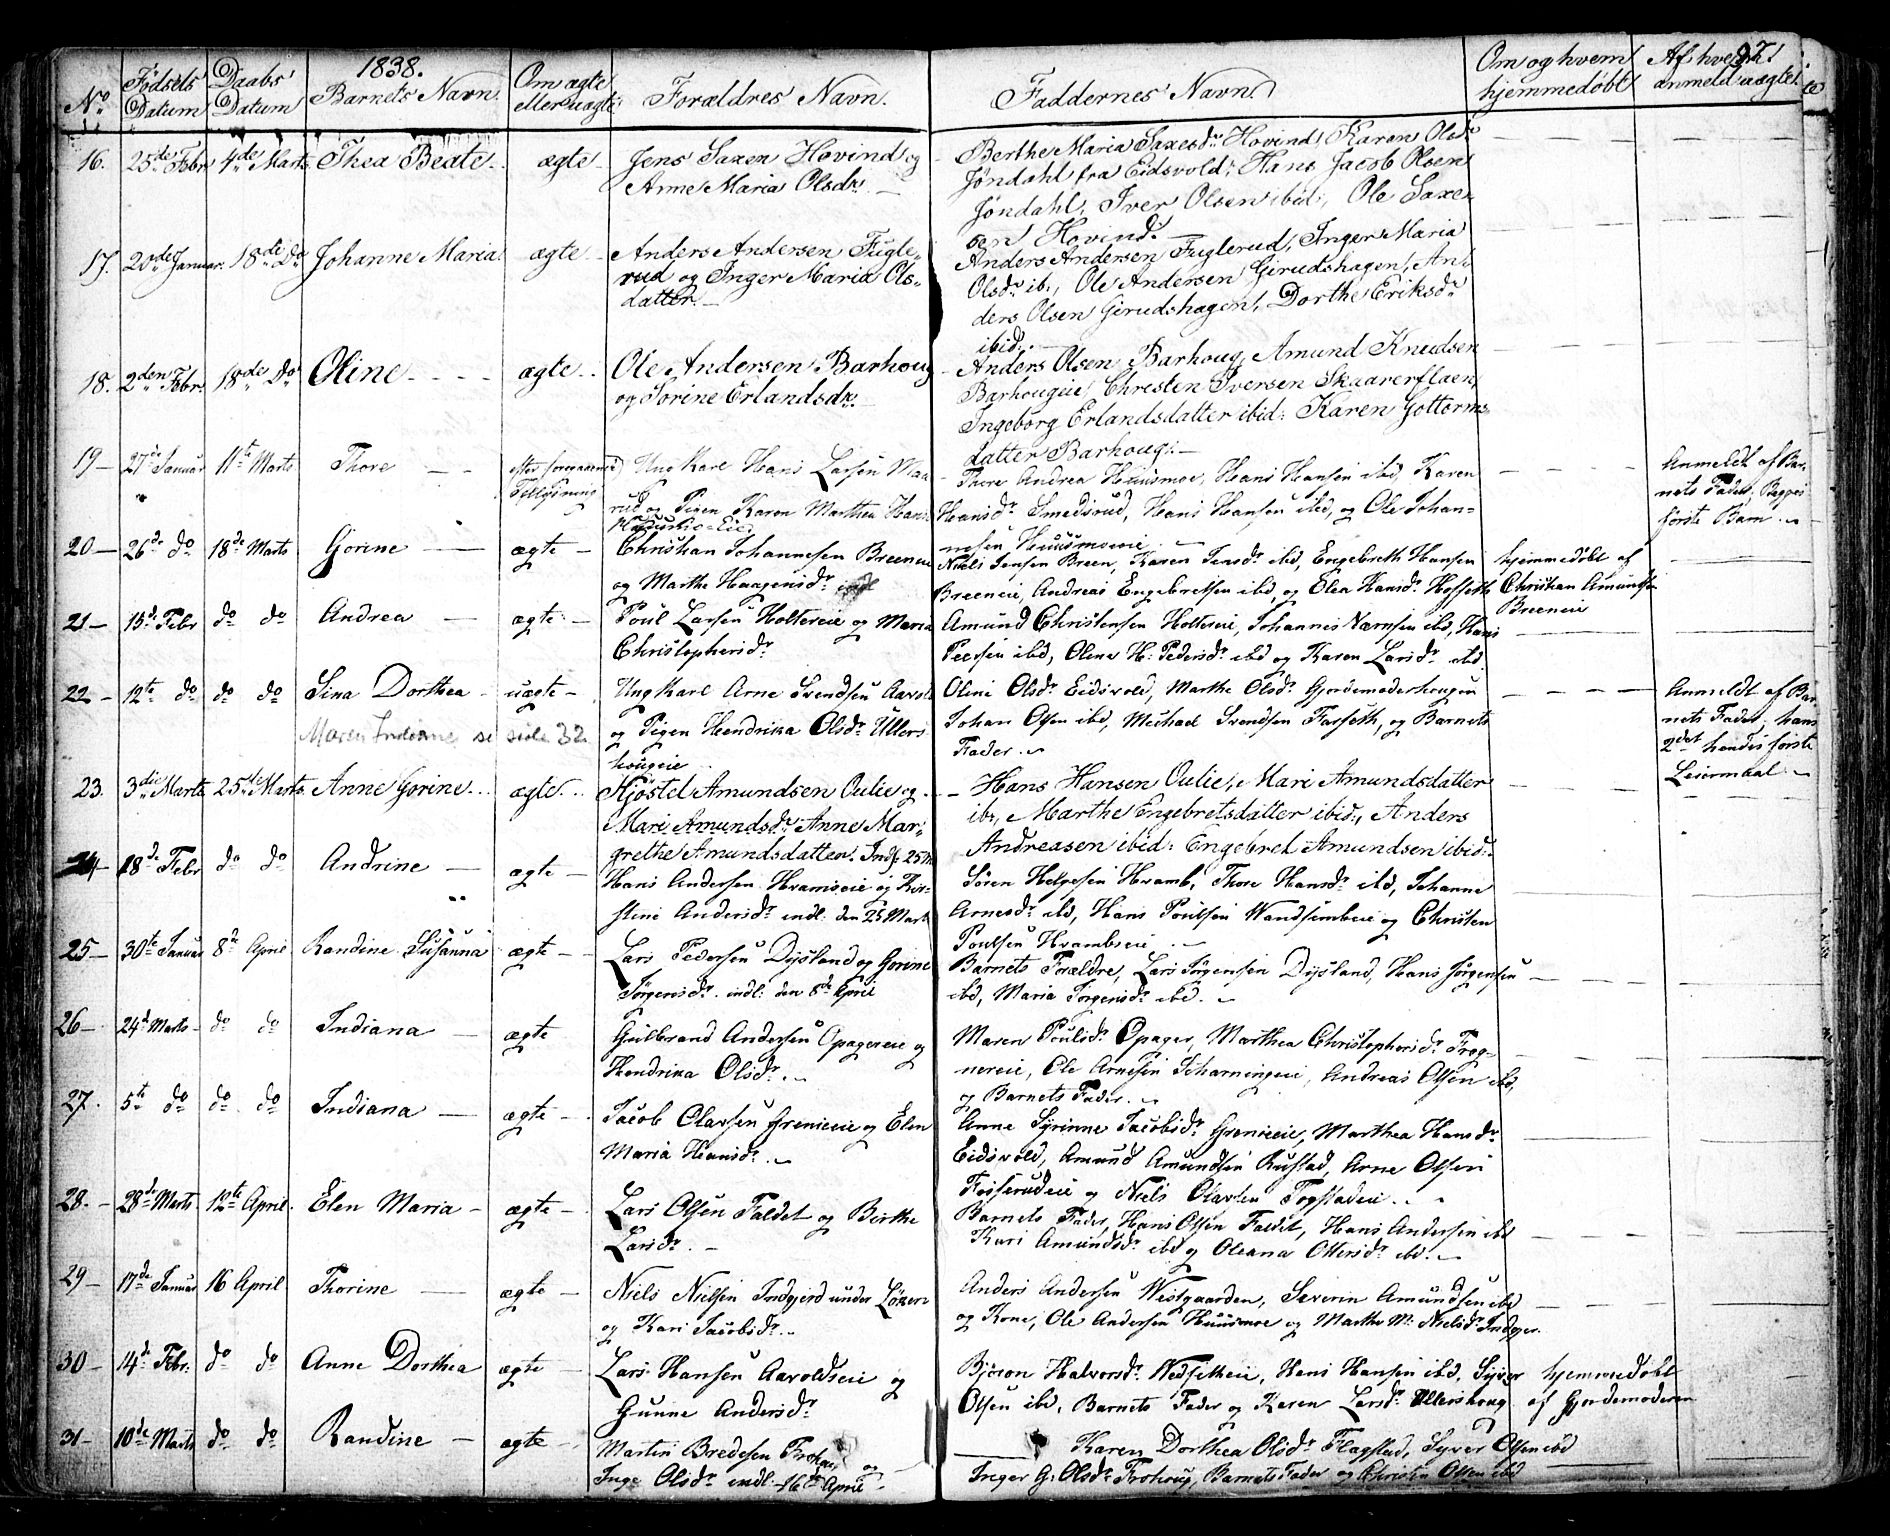 1838.
No
Fødsels Datum
Daabs Datum
Barnets Navn
Om ægte eller uægte
Forældres Navn.
Faddernes Navn.
Om og hvem hjemmedøbt
Af hvem anmeldt uægte.
16. 25de Febr 4de Marts Thea Beate ægte
Jens Saxen Hovind og
Anne Maria Olsdr.
Berthe Maria Saxesdr Hovind, Karen Olsdr
Jøndahl fra Eidsvold, Hans Jacob Olsen
Jøndahl, Iver Olsen ibid, Ole Saxe
sen Hovind.
17. 20de Januar. 18de Do Johanne Maria ægte
Anders Andersen Fugle-
rud og Inger Maria Ols-
datter.
Anders Andersen Fuglerud, Inger Maria
Olsdr ib:, Ole Andersen Girudshagen, An-
ders Olsen Girudshagen, Dorthe Eriksdr
ibid:
18. 2den Febr. 18de Do Oline ægte
Ole Andersen Barhoug
og Sørine Erlandsdr.
Anders Olsen Barhoug, Amund Knudsen
Barhougeie, Christen Iversen Skaarerflaen,
Ingeborg Erlandsdatter ibid: Karen Gottorms
datter Barhoug.
19 27de Januar 11te Marts Thore
efter foregaaende Tillysning
Ung Karl Hans Larsen Maa
rud og Pigen Karen Marthea Hans
Thore Andrea Huusmoe, Hans Hansen ibd, Karen
Hansdr Smedsrud, Hans Hansen ibd, og Ole Johan-
nesen Huusmoeeie
Anmeldt af Bar-
nets Fader, Begges
første Barn
20 26de do 18de Marts Gorine ægte
Christian Johannesen Breeneie
og Marthe Haagensdr
Niels Jensen Breen, Karen Jensdr ibd, Engebreth Hansen
Breeneie, Andreas Engebretsen ibd, og Elea Hansdr Hofseth
hjemmedøbt af
Christian Amundsen
Breeneie
21 15de Febr do do Andrea ægte
Poul Larsen Holtereie og Maria
Christophersdr
Amund Christensen Holtereie, Johannes Nærnsen ibd, Hans
Peersen ibd, Oline H: Pedersdr ibd og Karen Larsdr ibd.
22 12te do do do Sina Dorthea uægte
Maren Indiane se side 32
Ung Karl Arne Svendsen Aavold
og Pigen Hendrika Olsdr Ullers
hougeie
Oline Olsdr Eidsvold, Marthe Olsdr Gjordemoderhougen
Johan Olsen ibd, Michael Svendsen Farseth, og Barnets
Fader
Anmeldt af Bar-
nets Fader, hans
2det hendes første
Leiermaal
23. 3die Marts 25de Marts Anne Gorine ægte
Kjøstel Amundsen Oulie og
Mari Amundsdr. Anne Mar-
grethe Amundsdatter. Indf: 25 M
Hans Hansen Oulie, Mari Amundsdatter
ib, Marthe Engebretsdatter ibid:, Anders
Andreasen ibid: Engebret Amundsen ibid:
24 18de Febr do do Andrine ægte
Hans Andersen Hramseie og Kir-
stine Andersdr indl. den 25 Marts
Søren Helgesen Hramb, Thore Hansdr ibd, Johanne
Arnesdr ibd, Hans Poulsen Wandsembeie og Christen
Poulsen Hrambseie
25 30te Januar 8de April Randine Susanna ægte
Lars Pedersen Dysland og Gorine
Jørgensdr. indl: den 8de April
Barnets Forældre, Lars Jørgensen Dysland, Hans Jørgensen
ibd, Maria Jørgensdr ibd.
26 24de Marts do do Indiana ægte
Gulbrand Andersen Opagereie og
Hendrika Olsdr.
Maren Poulsdr Opager, Marthea Christophersdr Frog-
nereie, Ole Arnesen Scharningeie, Andreas Olsen ibd,
og Barnets Fader.
27. 5te do do do Indiana ægte
Jacob Olavsen Grenieeie og Elen
Maria Hansdr.
Anne Syrinne Jacobsdr Grenieeie, Marthea Hansdr
Eidsvold, Amund Amundsen Rustad, Arne Olsen
Fosserudeie og Niels Olavsen Fogstadeie.
28. 28de Marts 12te April Elen Maria ægte
Lars Olsen Faldet og Birthe
Larsdr.
Barnets Fader, Hans Olsen Faldet, Hans Andersen ibd
Kari Amundsdr ibd og Oleana Ottersdr ibd.
29 17de Januar 16 April Thorine ægte
Niels Nielsen Indgjerd under Løken
og Kari Jacobsdr.
Anders Andersen Westgaarden, Severin Amundsen ibd
og Kone, Ole Andersen Huusmoe og Marthe M: Nielsdr Indgjer.
30 14de Febr. do do Anne Dorthea ægte
Lars Hansen Aavoldseie og
Gunne Andersdr
Bjøron Halvorsdr Nedsetheie, Hans Hansen ibd, Syver
Olsen ibd, Barnets Fader og Karen Larsdr Ullershoug
hjemmedøbt
af Gjordemoderen
31 10de Marts do do Randine ægte
Martin Bredesen Frohoug og
Inge Olsdr indl 16de April
Karen Dorthea Olsdr Flagstad, Syver Olsen ibd
Inger G: Olsdr Frohoug, Barnets Fader og Christen Olsen ibd